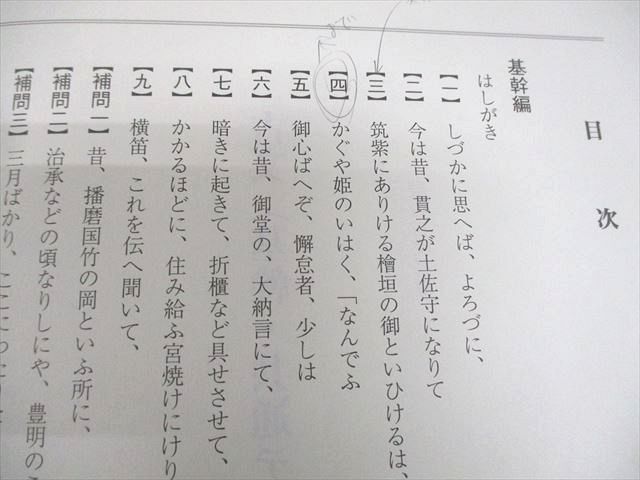 目次
基幹編
はしがき
【一】 しづかに思へば、よろづに、
【二】 今は昔、貫之が土佐守になりて
【三】 筑紫にありける檜垣の御といひけるは、
【四】 かぐや姫のいはく、「なんでふ
【五】 御心ばへぞ、懈怠者、少しは
【六】 今は昔、御堂の、大納言にて、
【七】 暗きに起きて、折櫃など具せさせて、
【八】 かかるほどに、住み給ふ宮焼けにけり
【九】 横笛、これを伝へ聞いて、
【補問一】 昔、播磨国竹の岡といふ所に、
【補問二】 治承などの頃なりしにや、豊明の
【補問三】 三月ばかり、ここにわたり
まで